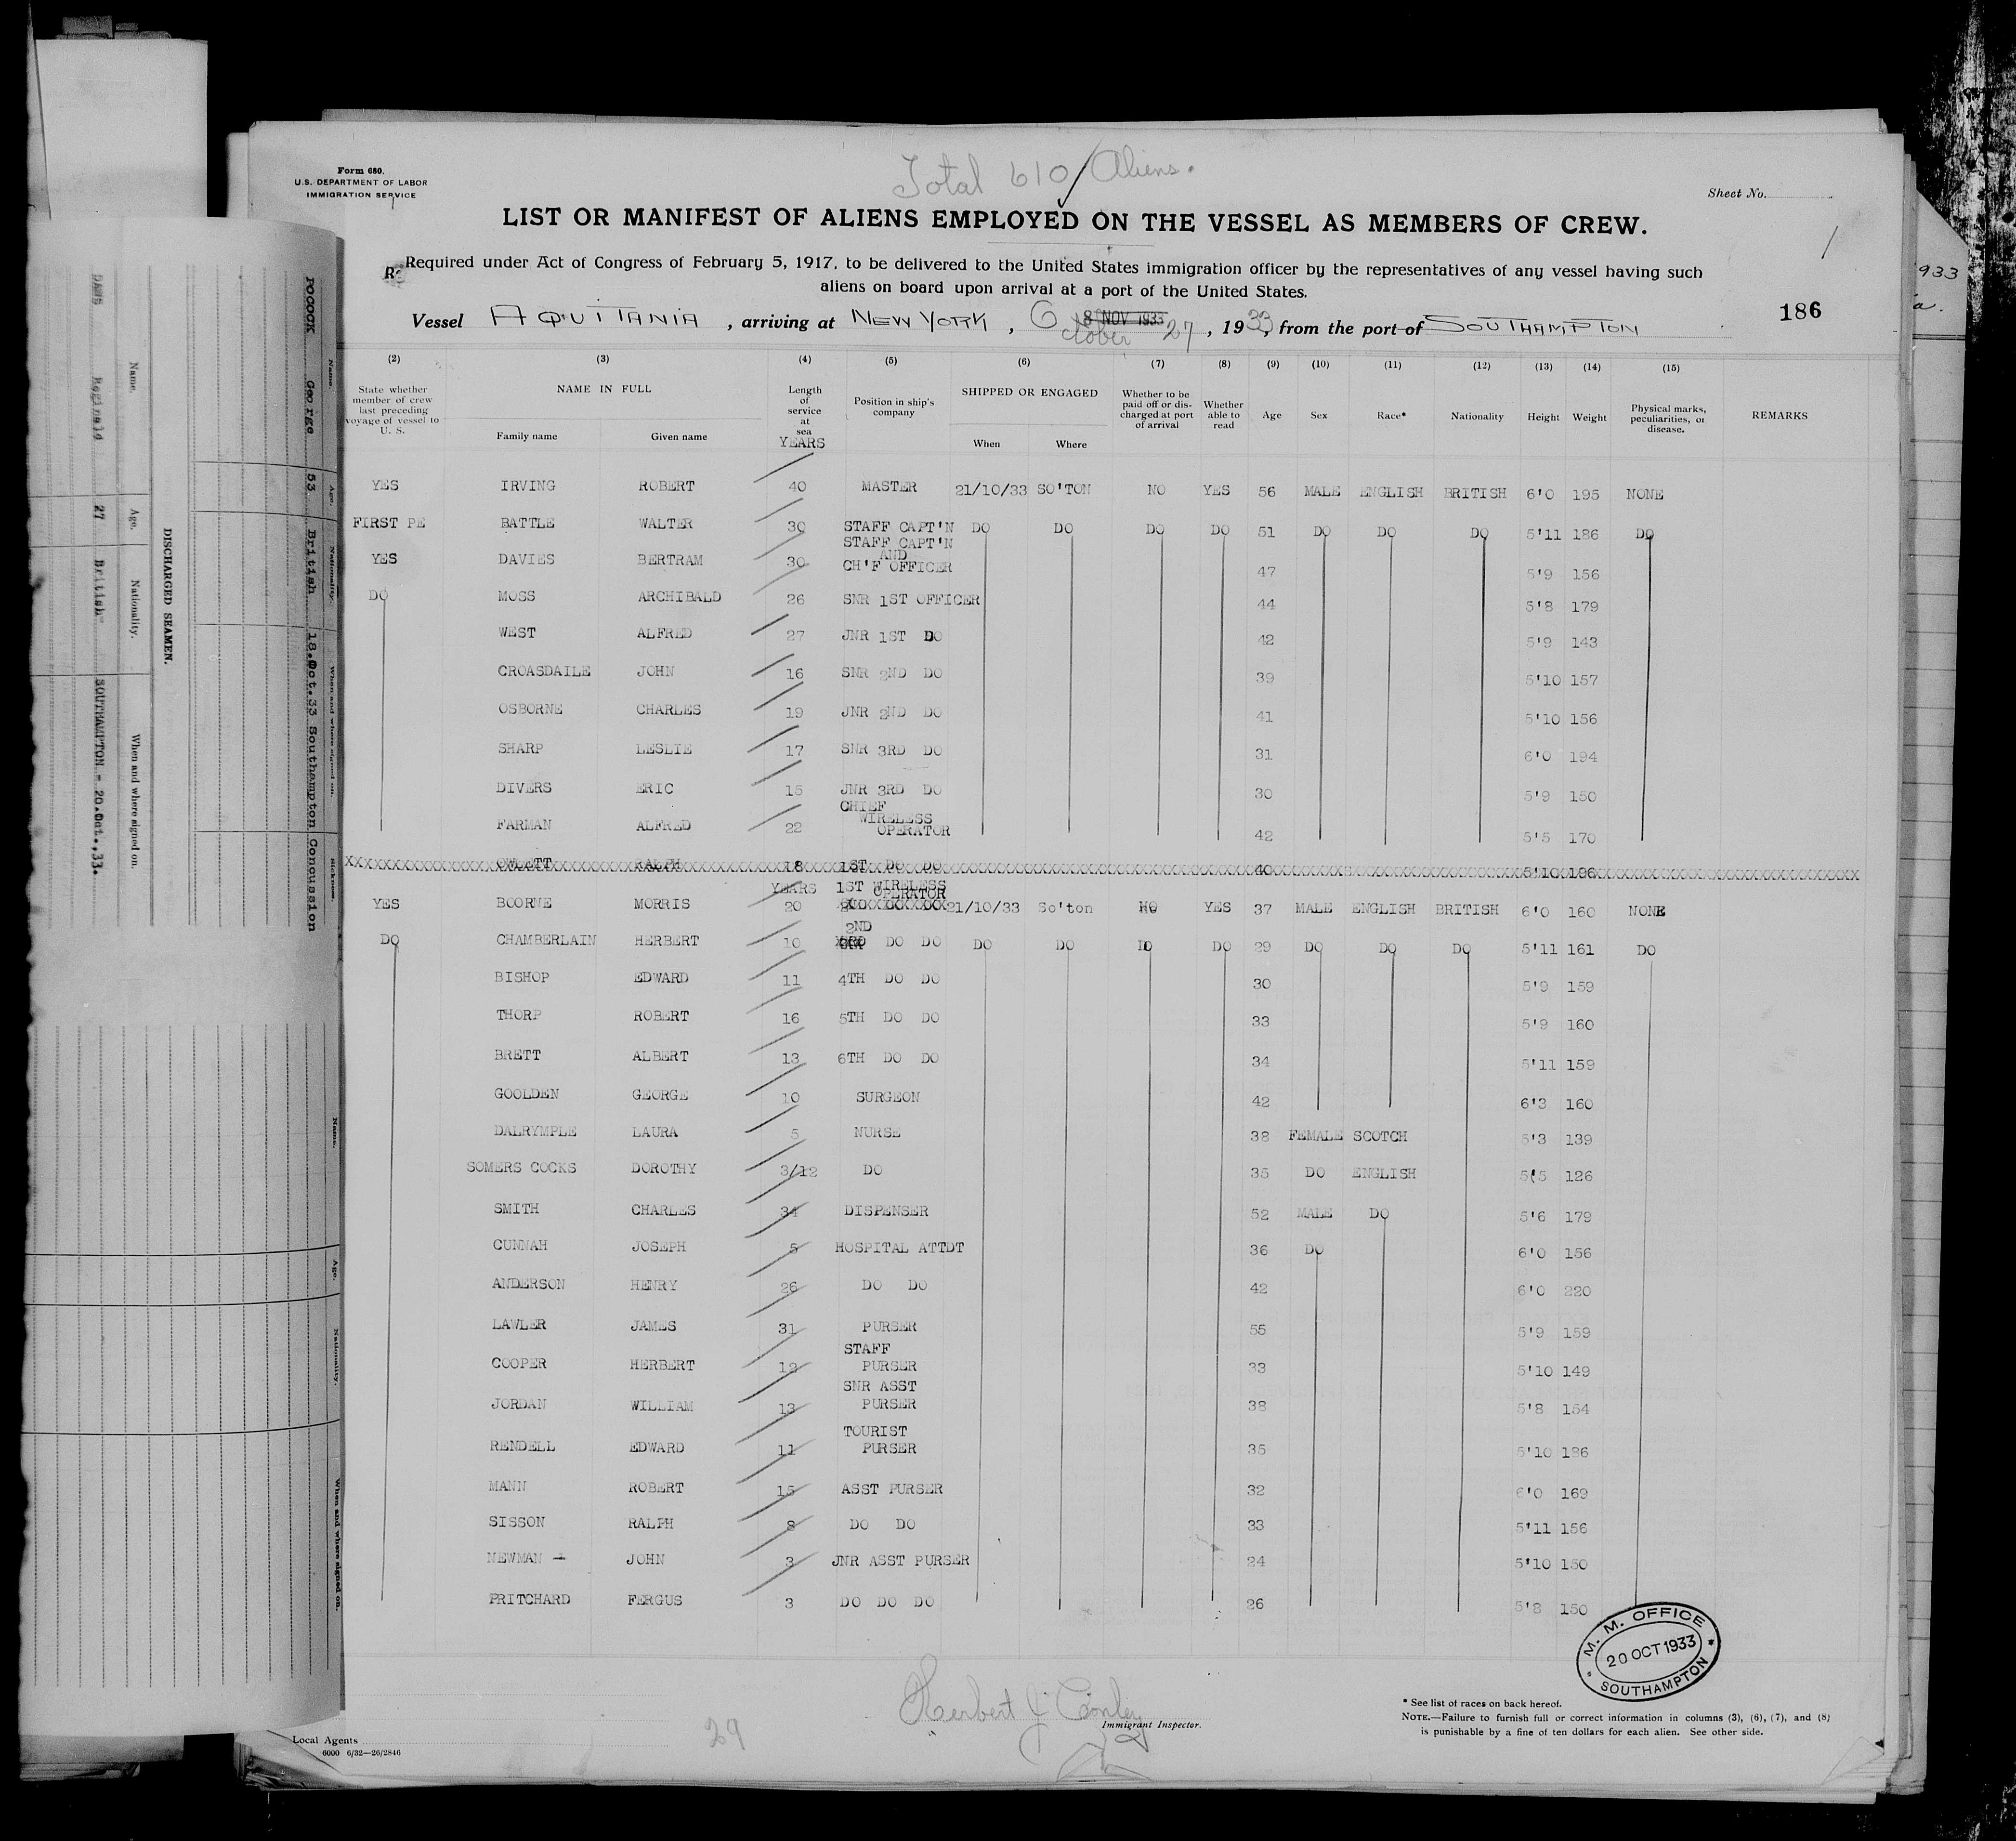 Form 680.
U.S. DEPARTMENT OF LABOR
IMMIGRATION SERVICE
Total 610 Aliens.
Sheet No.
LIST OR MANIFEST OF ALIENS EMPLOYED ON THE VESSEL AS MEMBERS OF CREW.
1
Required under Act of Congress of February 5, 1917, to be delivered to the United States immigration officer by the representatives of any vessel having such
aliens on board upon arrival at a port of the United States.
186
Vessel AQUITANIA, arriving at NEW YORK, 8 NOV 1933 October 27, 1933, from the port of SOUTHAMPTON
(2) (3) (4) (5) (6) (7) (8) (9) (10) (11) (12) (13) (14) (15)
State whether member of crew last preceding voyage of vessel to U. S. NAME IN FULL Family name Given name Length of service at sea YEARS Position in ship's company SHIPPED OR ENGAGED When Where Whether to be paid off or discharged at port of arrival Whether able to read Age Sex Race* Nationality Height Weight Physical marks, peculiarities, or disease. REMARKS
YES IRVING ROBERT 40 MASTER 21/10/33 SO'TON NO YES 56 MALE ENGLISH BRITISH 6'0 195 NONE
FIRST PE BATTLE WALTER 30 STAFF CAPT'N DO DO DO DO 51 DO DO DO 5'11 186 DO
YES DAVIES BERTRAM 30 STAFF CAPT'N AND CH'F OFFICER 47 5'9 156
DO MOSS ARCHIBALD 26 SNR 1ST OFFICER 44 5'8 179
WEST ALFRED 27 JNR 1ST DO 42 5'9 143
CROASDAILE JOHN 16 SNR 2ND DO 39 5'10 157
OSBORNE CHARLES 19 JNR 2ND DO 41 5'10 156
SHARP LESLIE 17 SNR 3RD DO 31 6'0 194
DIVERS ERIC 15 JNR 3RD DO 30 5'9 150
FARMAN ALFRED 22 CHIEF WIRELESS OPERATOR 42 5'5 170
RALPH 18 1ST DO DO 40 5'10 196
YES BOORNE MORRIS YEARS 20 1ST WIRELESS OPERATOR 21/10/33 So'ton NO YES 37 MALE ENGLISH BRITISH 6'0 160 NONE
DO CHAMBERLAIN HERBERT 10 2ND DO DO DO DO DO DO 29 DO DO DO 5'11 161 DO
BISHOP EDWARD 11 4TH DO DO 30 5'9 159
THORP ROBERT 16 5TH DO DO 33 5'9 160
BRETT ALBERT 13 6TH DO DO 34 5'11 159
GOOLDEN GEORGE 10 SURGEON 42 6'3 160
DALRYMPLE LAURA 5 NURSE 38 FEMALE SCOTCH 5'3 139
SOMERS COCKS DOROTHY 3/12 DO 35 DO ENGLISH 5'5 126
SMITH CHARLES 34 DISPENSER 52 MALE DO 5'6 179
CUNNAH JOSEPH 5 HOSPITAL ATTDT 36 DO 6'0 156
ANDERSON HENRY 26 DO DO 42 6'0 220
LAWLER JAMES 31 PURSER 55 5'9 159
COOPER HERBERT 12 STAFF PURSER 33 5'10 149
JORDAN WILLIAM 13 SNR ASST PURSER 38 5'8 154
RENDELL EDWARD 11 TOURIST PURSER 35 5'10 186
MANN ROBERT 15 ASST PURSER 32 6'0 169
SISSON RALPH 8 DO DO 33 5'11 156
NEWMAN JOHN 3 JNR ASST PURSER 24 5'10 150
PRITCHARD FERGUS 3 DO DO DO 26 5'8 150
M. M. OFFICE
20 OCT 1933
SOUTHAMPTON
Herbert J Conley
Immigrant Inspector.
29
Local Agents
6000 6/32—26/2846
* See list of races on back hereof.
NOTE.—Failure to furnish full or correct information in columns (3), (6), (7), and (8)
is punishable by a fine of ten dollars for each alien. See other side.
DISCHARGED SEAMEN.
Name. Age. Nationality. When and where signed on.
Reginald 27 British SOUTHAMPTON - 20.Oct.,33.
Name. Age. Nationality. When and where signed on. Sickness.
POCOCK George 53 British 18.Oct.33 Southampton Concussion
Name. Age. Nationality. When and where signed on.
933
a.